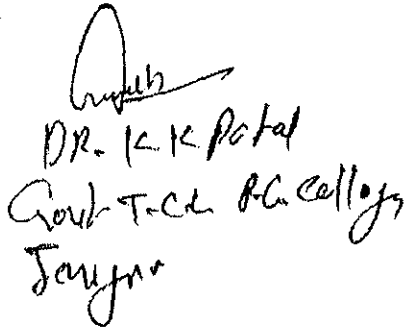 DR. K K Patal
Govt T.C.L. P.G. College,
Janjgir